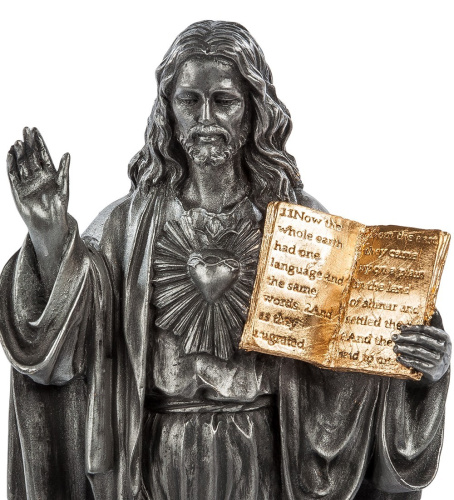 11Now the
whole earth
had one
language and
the same
words. 2And
as they
migrated
from the east
they came
upon a plain
in the land
of shinar and
settled there
And they
said to